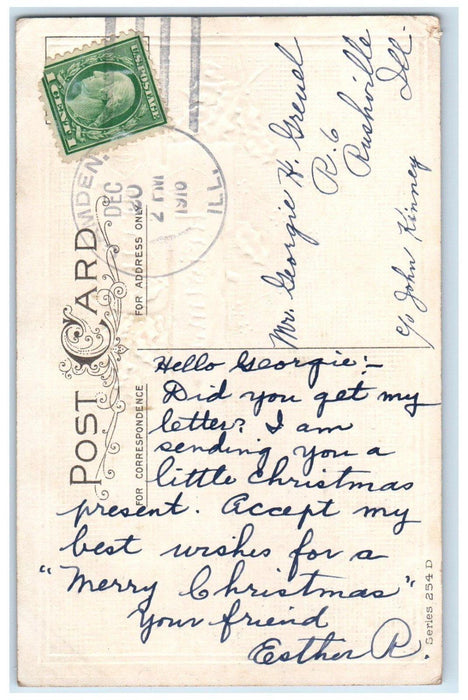 U.S. POSTAGE
1 CENT 1
MDEN.
DEC
20
2 PM
1916
ILL.
POST CARD
FOR ADDRESS ONLY
FOR CORRESPONDENCE
Mr. Georgie H. Greuel
R. 6
Rushville
Ill.
c/o John Kinney
Hello Georgie:-
Did you get my
letter? I am
sending you a
little Christmas
present. Accept my
best wishes for a
"Merry Christmas"
Your friend
Esther R.
Series 254 D